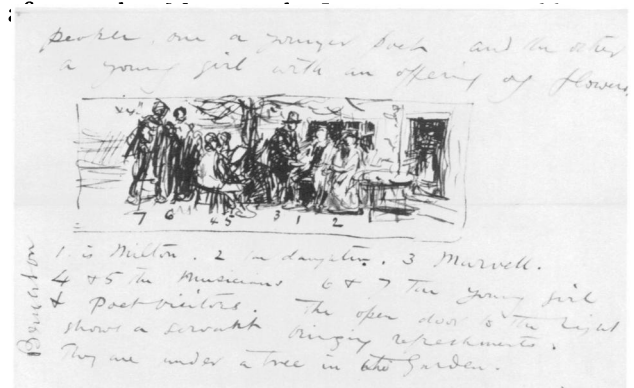 people, one a younger poet and the other
a young girl with an offering of flowers,
7 6 4 5 3 1 2
1 is Milton. 2 his daughter. 3 Marvell.
4 & 5 the Musicians 6 & 7 the young girl
& Poet-visitors. The open door to the right
shows a servant bringing refreshments.
They are under a tree in the Garden.